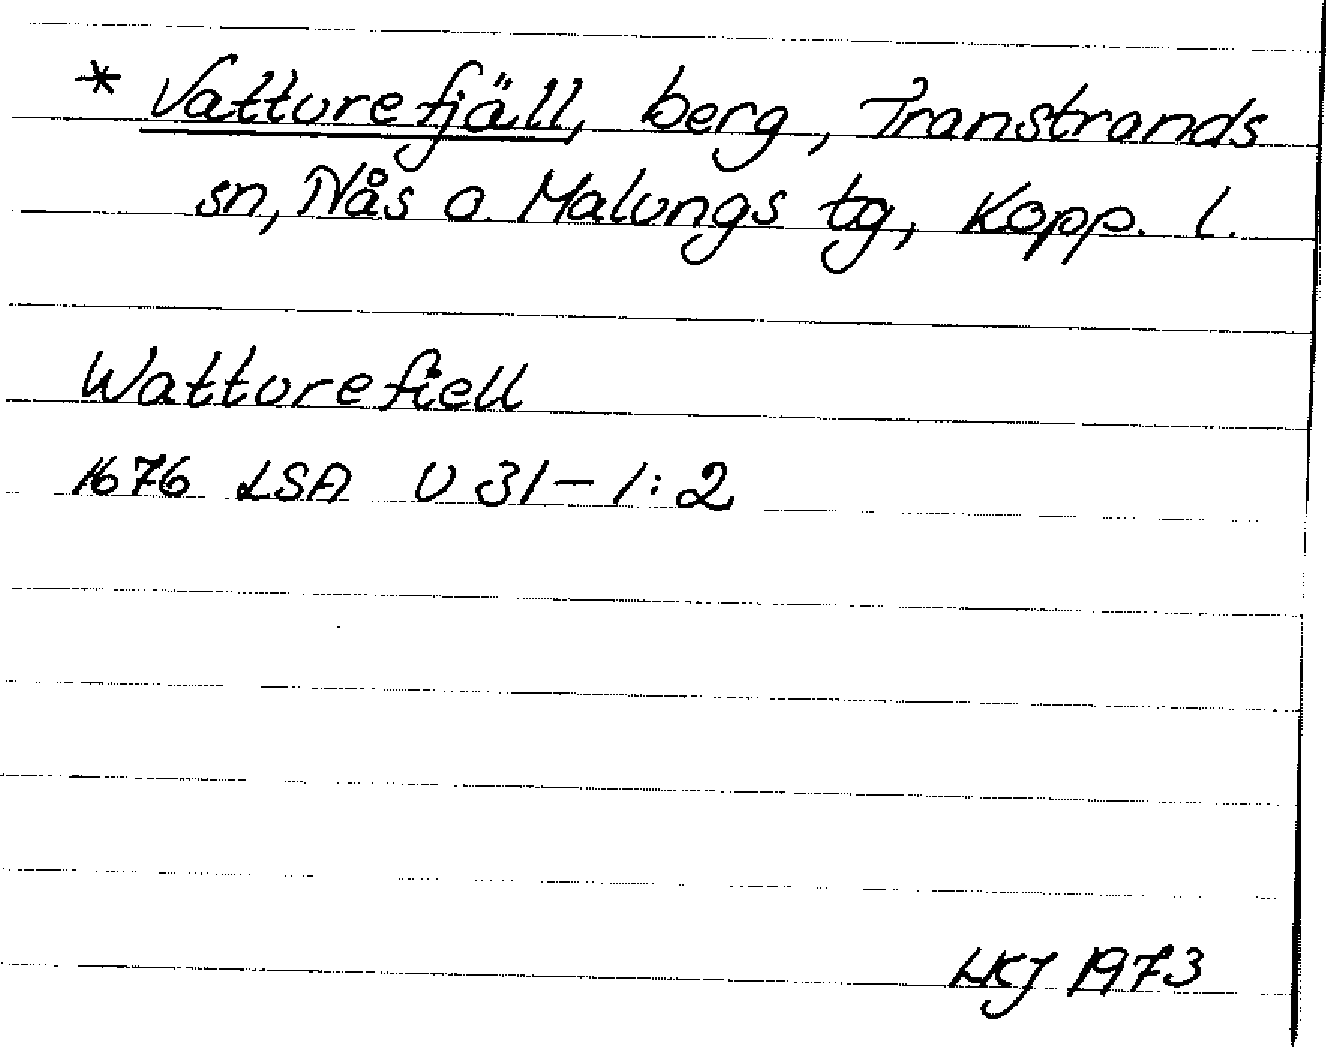 * Vatturefjäll, berg, Transtrands
sn, Nås o. Malungs tg, Kopp. l.
Watturefiell
1676 LSA U 31-1:2
HKJ 1973